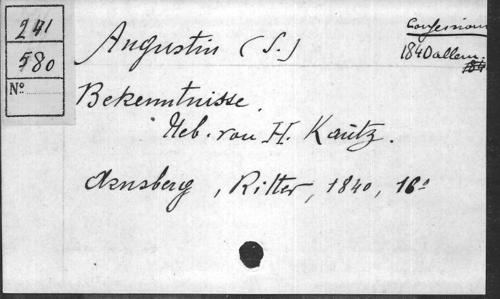 241
580
No
Augustin (S.)
Confessions
1840 allem.
Bekenntnisse.
Ueb. von H. Kautz.
Arnsberg, Ritter, 1840, 16°